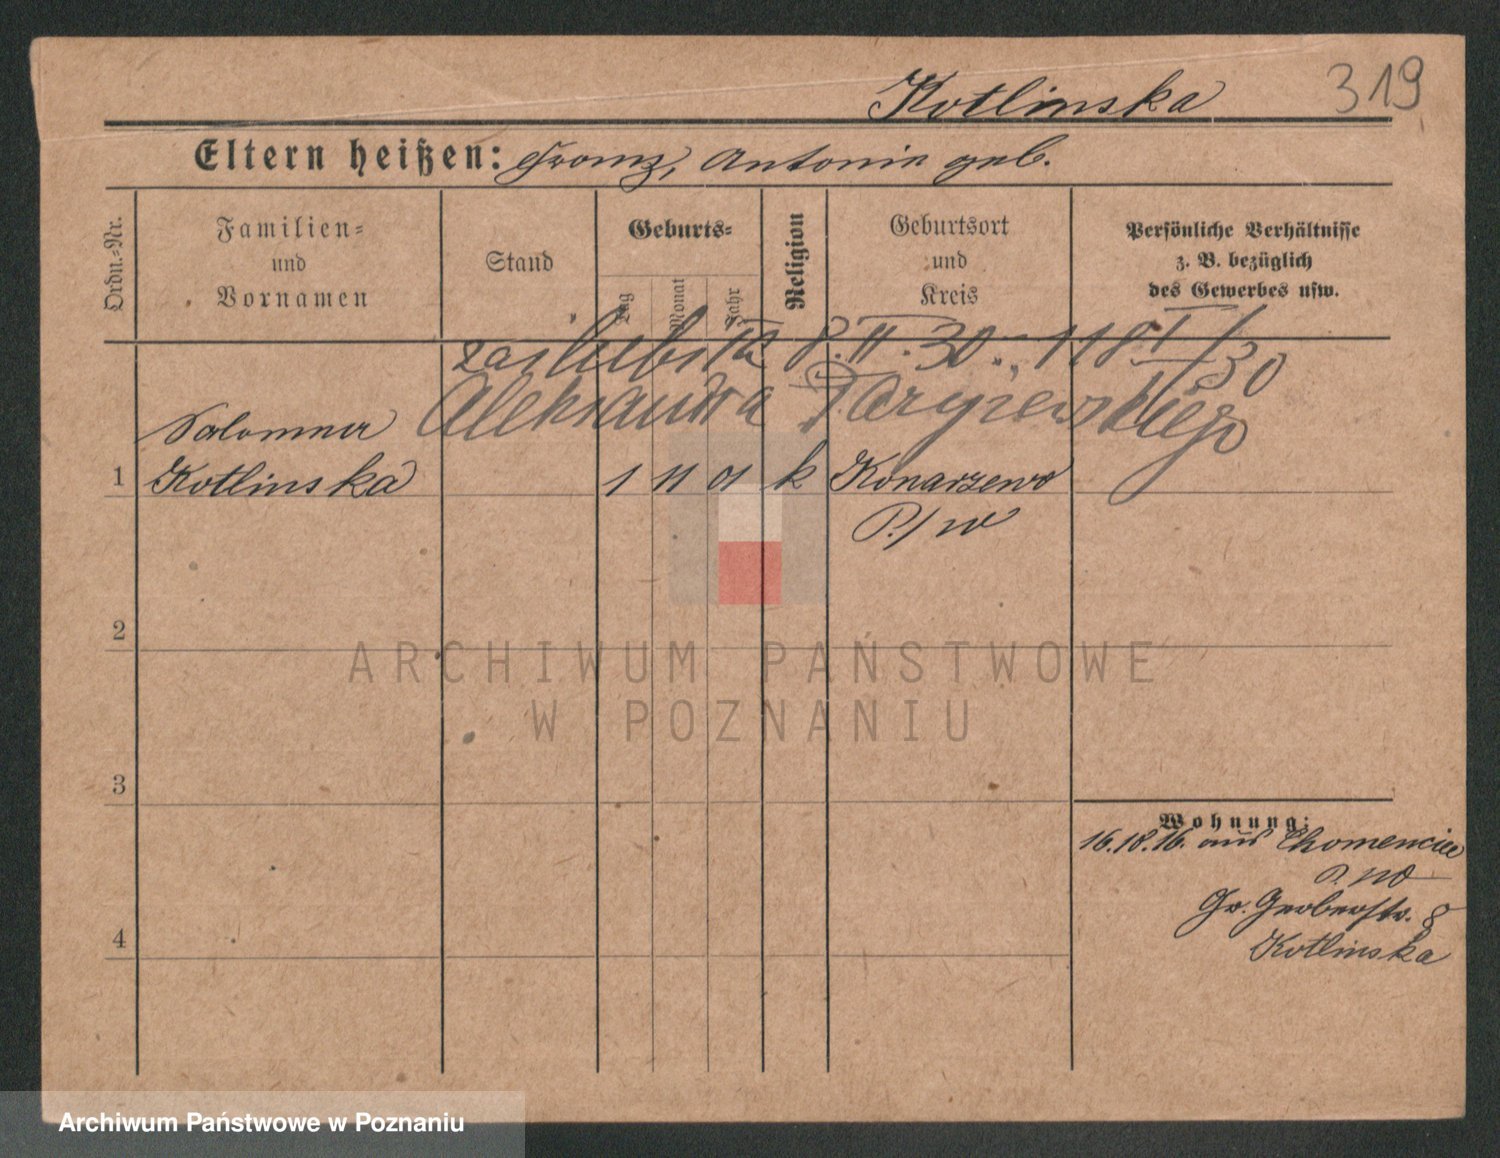 Kotlinska 319
Eltern heißen: Franz, Antonie geb.
Ordn.-Nr.
Familien-
und
Vornamen
Stand
Geburts-
Tag
Monat
Jahr
Religion
Geburtsort
und
Kreis
Persönliche Verhältnisse
z. B. bezüglich
des Gewerbes usw.
zaślubiła 8. II. 30. 118 I/30
Aleksandra
1 Salomea
Kotlinska 1 11 01 k Konarzewo
P./W
2
3
4
Wohnung:
16.18.16. aus Chomencice
P. W
Gr. Gerberstr. 8
Kotlinska
ARCHIWUM PAŃSTWOWE
W POZNANIU
Archiwum Państwowe w Poznaniu